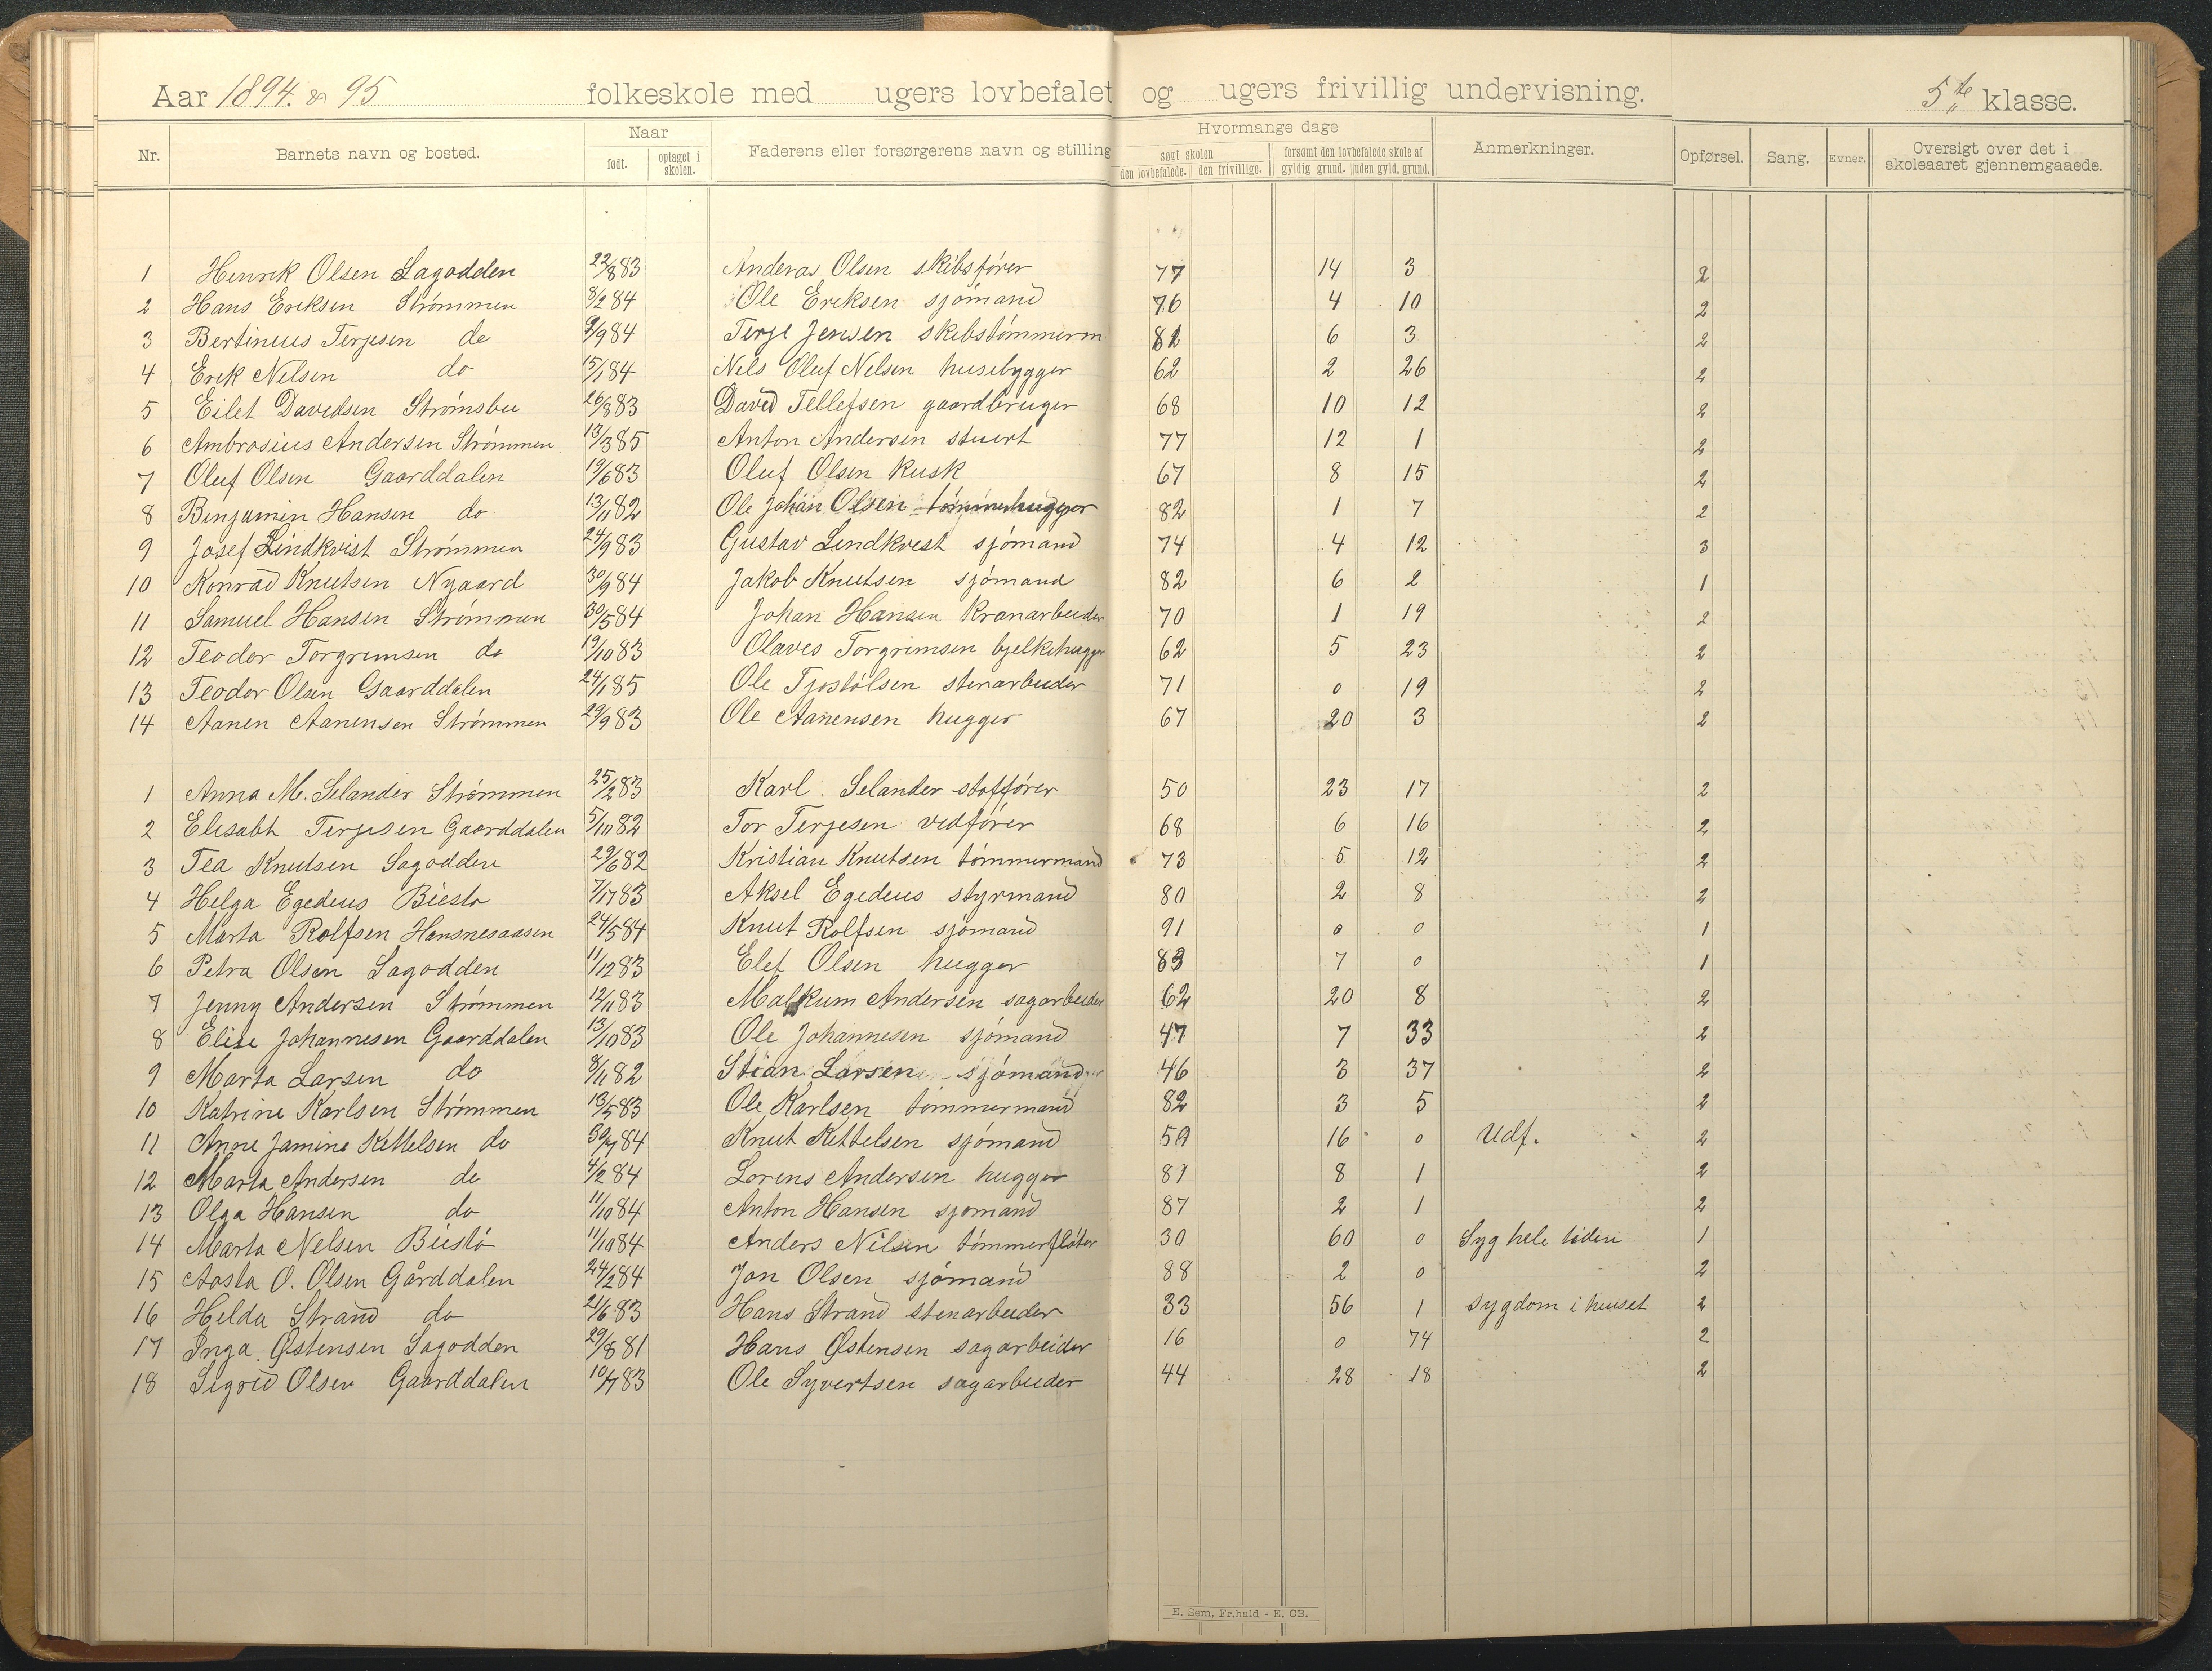 Aar 1894. & 95 folkeskole med ugers lovbefalet og ugers frivillig undervisning. 5te klasse.
Nr. Barnets navn og bosted. Naar født. optaget i skolen. Faderens eller forsørgerens navn og stilling Hvormange dage søgt skolen den lovbefalede. den frivillige. forsømt den lovbefalede skole af gyldig grund. uden gyld. grund. Anmerkninger. Opførsel. Sang. Evner. Oversigt over det i skoleaaret gjennemgaaede.
1 Henrik Olsen Sagodden 22/8 83 Anderas Olsen skibsfører 77 14 3 2
2 Hans Eriksen Strømmen 8/2 84 Ole Eriksen sjömand 76 4 10 2
3 Bertinius Terjesen do 9/9 84 Terje Jensen skibstömmerm. 82 6 3 2
4 Erik Nilsen do 15/1 84 Nils Oluf Nilsen husebygger 62 2 26 2
5 Eilet Davidsen Strømsbu 26/8 83 David Tellefsen gaardbruger 68 10 12 2
6 Ambrosius Andersen Strømmen 13/3 85 Anton Andersen stuert 77 12 1 2
7 Oluf Olsen Gaarddalen 19/6 83 Oluf Olsen kusk 67 8 15 2
8 Benjamin Hansen do 13/11 82 Ole Johan Olsen tömmerhugger 82 1 7 2
9 Josef Lindkvist Strømmen 24/9 83 Gustav Lindkvist sjömand 74 4 12 3
10 Konrad Knutsen Nygaard 30/9 84 Jakob Knutsen sjömand 82 6 2 1
11 Samuel Hansen Strømmen 30/5 84 Johan Hansen Kranarbeider 70 1 19 2
12 Teodor Torgrimsen do 19/10 83 Olaves Torgrimsen bjelkehugger 62 5 23 2
13 Teodor Olsen Gaarddalen 24/1 85 Ole Tjostolsen stenarbeider 71 0 19 2
14 Aanen Aanensen Strømmen 29/9 83 Ole Aanensen hugger 67 20 3 2
1 Anna M. Selander Strømmen 25/2 83 Karl Selander stoffører 50 23 17 2
2 Elisabt Terjesen Gaarddalen 5/10 82 Tor Terjesen vedfører 68 6 16 2
3 Tea Knutsen Sagodden 29/6 82 Kristian Knutsen tömmermand 73 5 12 2
4 Helga Egedius Biestø 7/17 83 Aksel Egedius styrmand 80 2 8 2
5 Marta Rolfsen Hansnesaasen 24/5 84 Knut Rolfsen sjömand 91 0 0 1
6 Petra Olsen Sagodden 11/12 83 Elef Olsen hugger 83 7 0 1
7 Jenny Andersen Strømmen 12/11 83 Malkum Andersen sagarbeider 62 20 8 2
8 Elise Johannesen Gaarddalen 13/10 83 Ole Johannesen sjömand 47 7 33 2
9 Marta Larsen do 8/11 82 Stian Larsen sjömand 46 3 37 2
10 Katrine Karlsen Strømmen 18/5 83 Ole Karlsen tömmermand 82 3 5 2
11 Anne Jamine Kettelsen do 30/7 84 Knut Kettelsen sjömand 59 16 0 Udf. 2
12 Marta Andersen do 4/2 84 Lorens Andersen hugger 81 8 1 2
13 Olga Hansen do 11/10 84 Anton Hansen sjömand 87 2 1 2
14 Marta Nelsen Biestö 11/10 84 Anders Nilsen tömmerfløter 30 60 0 Syg hele tiden 1
15 Aasta O. Olsen Gårddalen 24/2 84 Jon Olsen sjömand 88 2 0 2
16 Helda Strand do 21/6 83 Hans Strand stenarbeider 33 56 1 sygdom i huset 2
17 Inga Østensen Sagodden 29/8 81 Hans Østensen sagarbeider 16 0 74 2
18 Sigrid Olsen Gaarddalen 10/7 83 Ole Syvertsen sagarbeider 44 28 18 2
E. Sem, Fr.hald - E. CB.